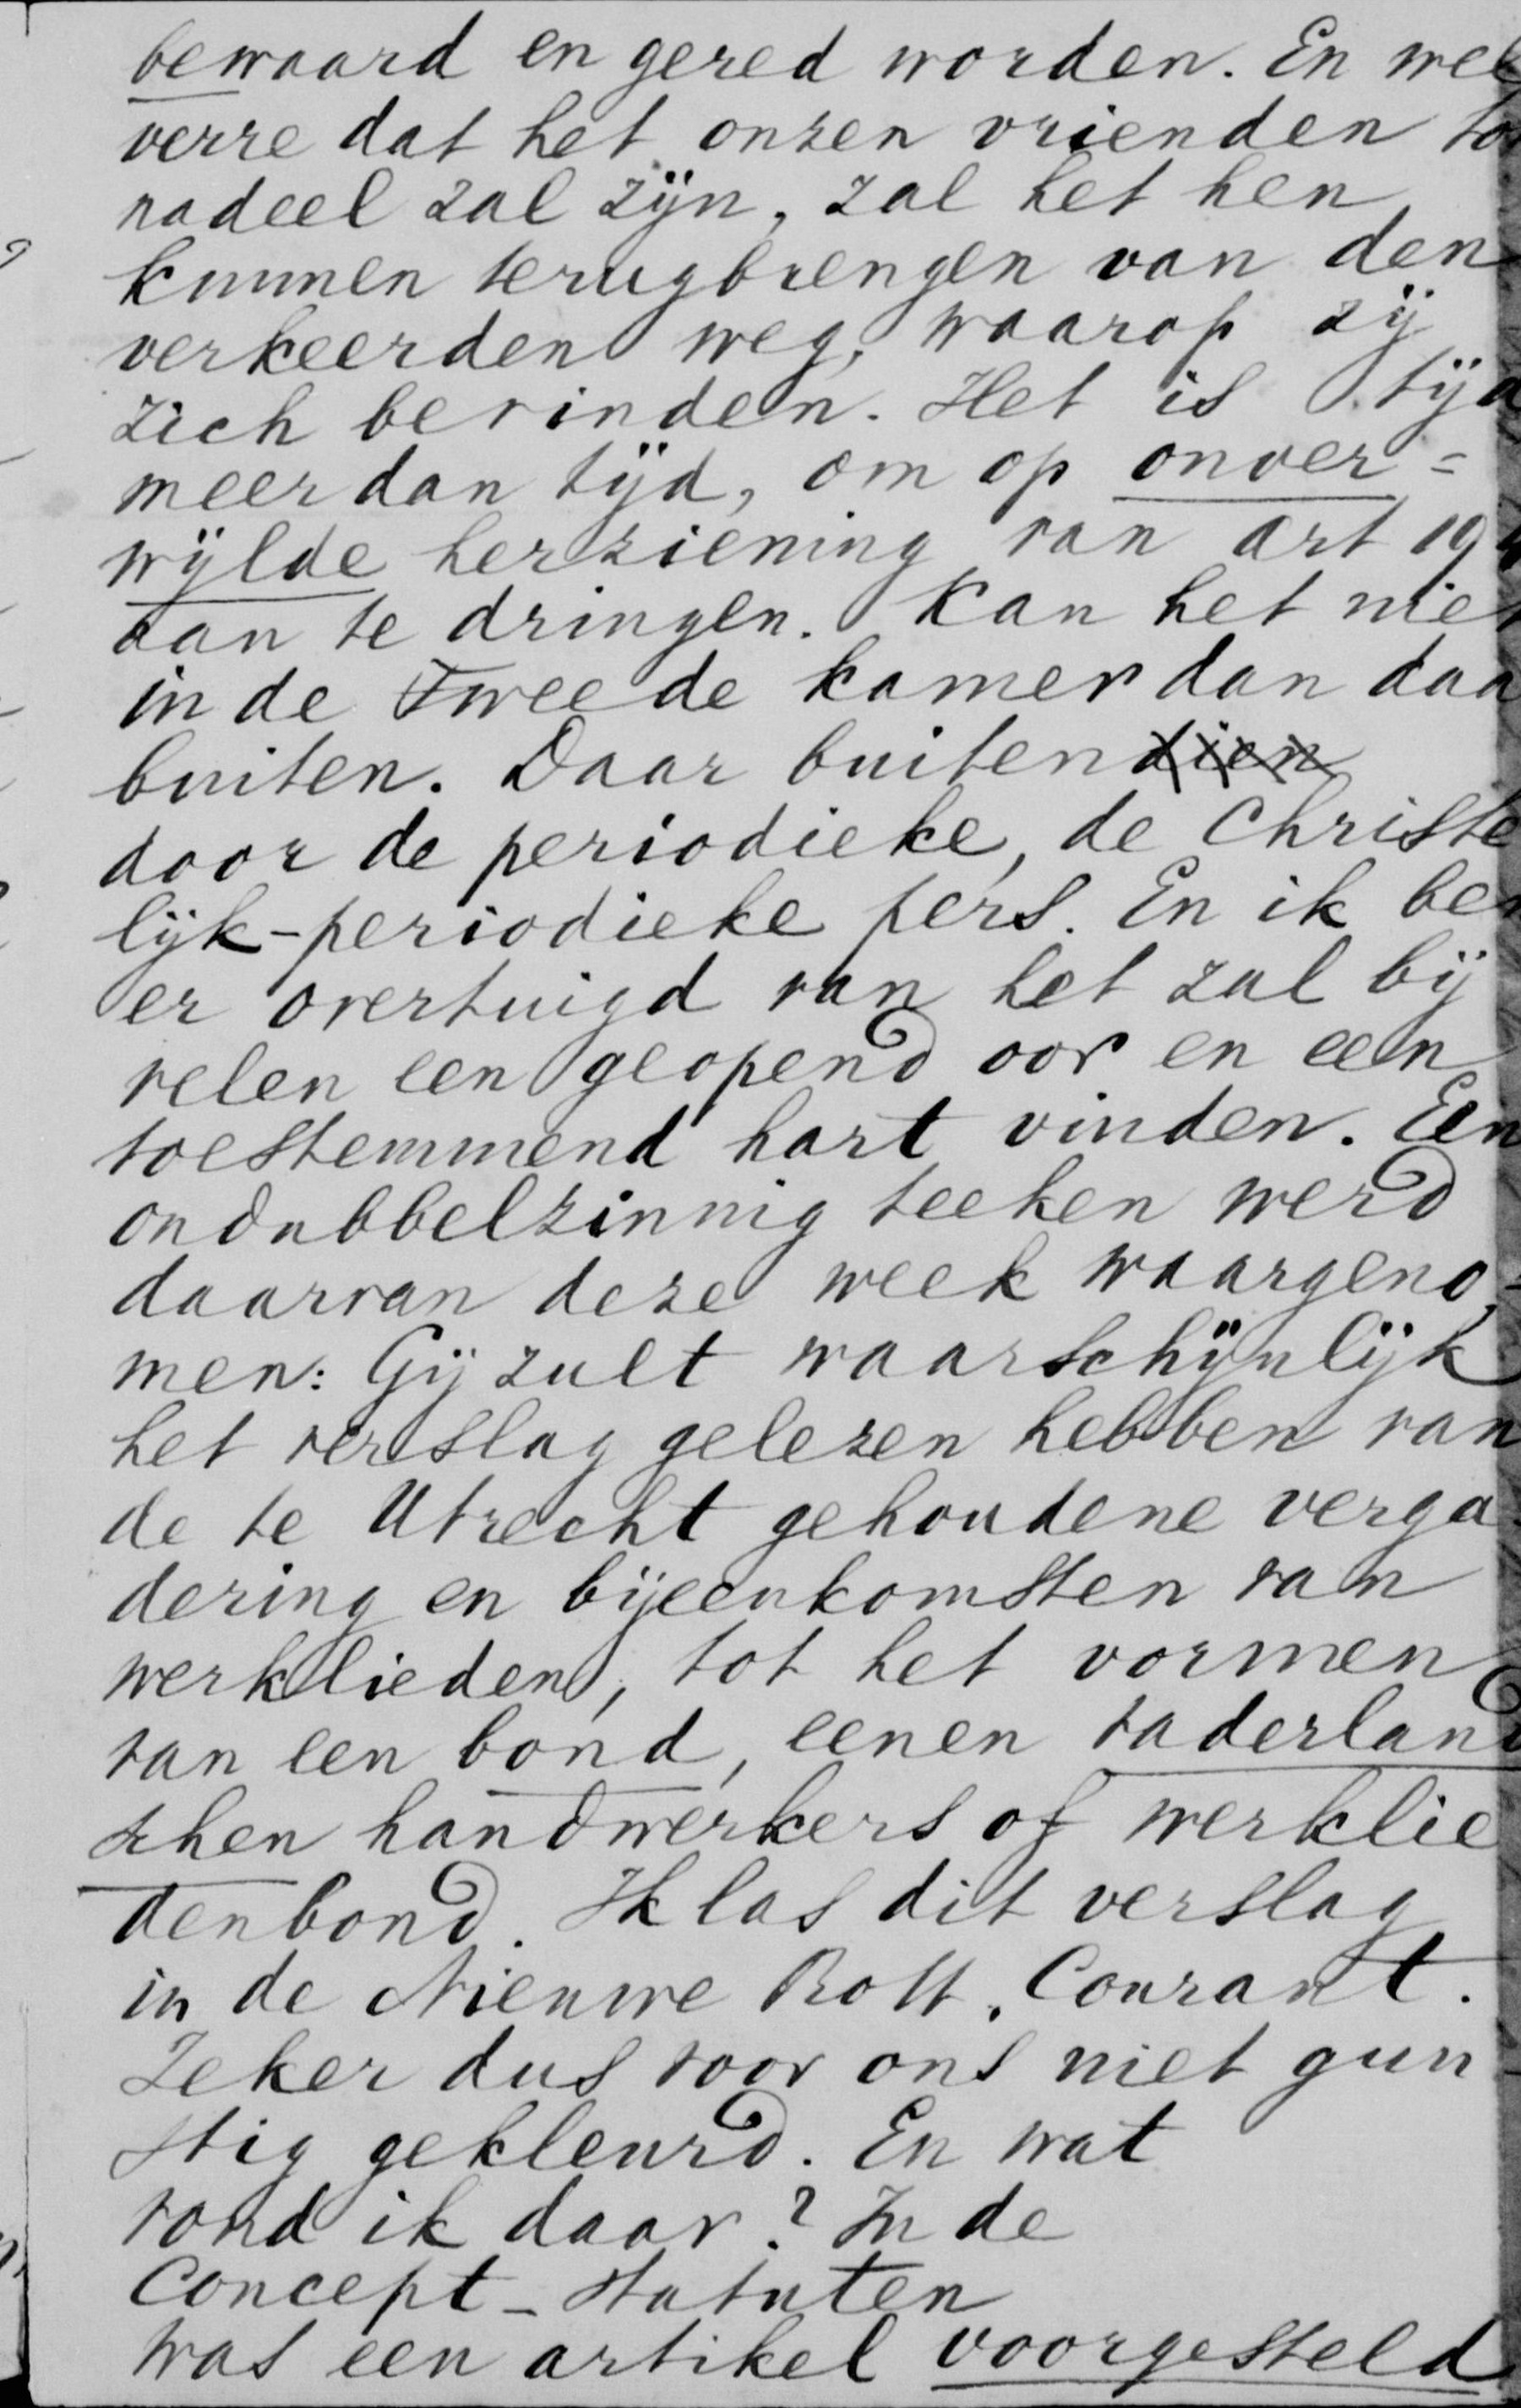 bewaard en gered worden. En wel
verre dat het onzen vrienden tot
nadeel zal zijn, zal het hen
kunnen terugbrengen van den
verkeerden weg, waarop zij
zich bevinden. Het is tijd
meer dan tijd, om op onver=
wijlde herziening van art 194
aan te dringen. Kan het niet
in de Tweede kamer dan daar
buiten. Daar buitendien
door de periodieke, de Christe
lijk-periodieke pers. En ik ben
er overtuigd van het zal bij
velen een geopend oor en een
toestemmend hart vinden. Een
ondubbelzinnig teeken werd
daarvan deze week waargeno=
men: Gij zult waarschijnlijk
het verslag gelezen hebben van
de te Utrecht gehoudene verga
dering en bijeenkomsten van
werklieden, tot het vormen
van een bond, eenen vaderland
schen handwerkers of werklie
denbond. Ik las dit verslag
in de Nieuwe Rott. Courant.
Zeker dus voor ons niet gun
stig gekleurd. En wat
vond ik daar? In de
Concept-Statuten
was een artikel voorgesteld